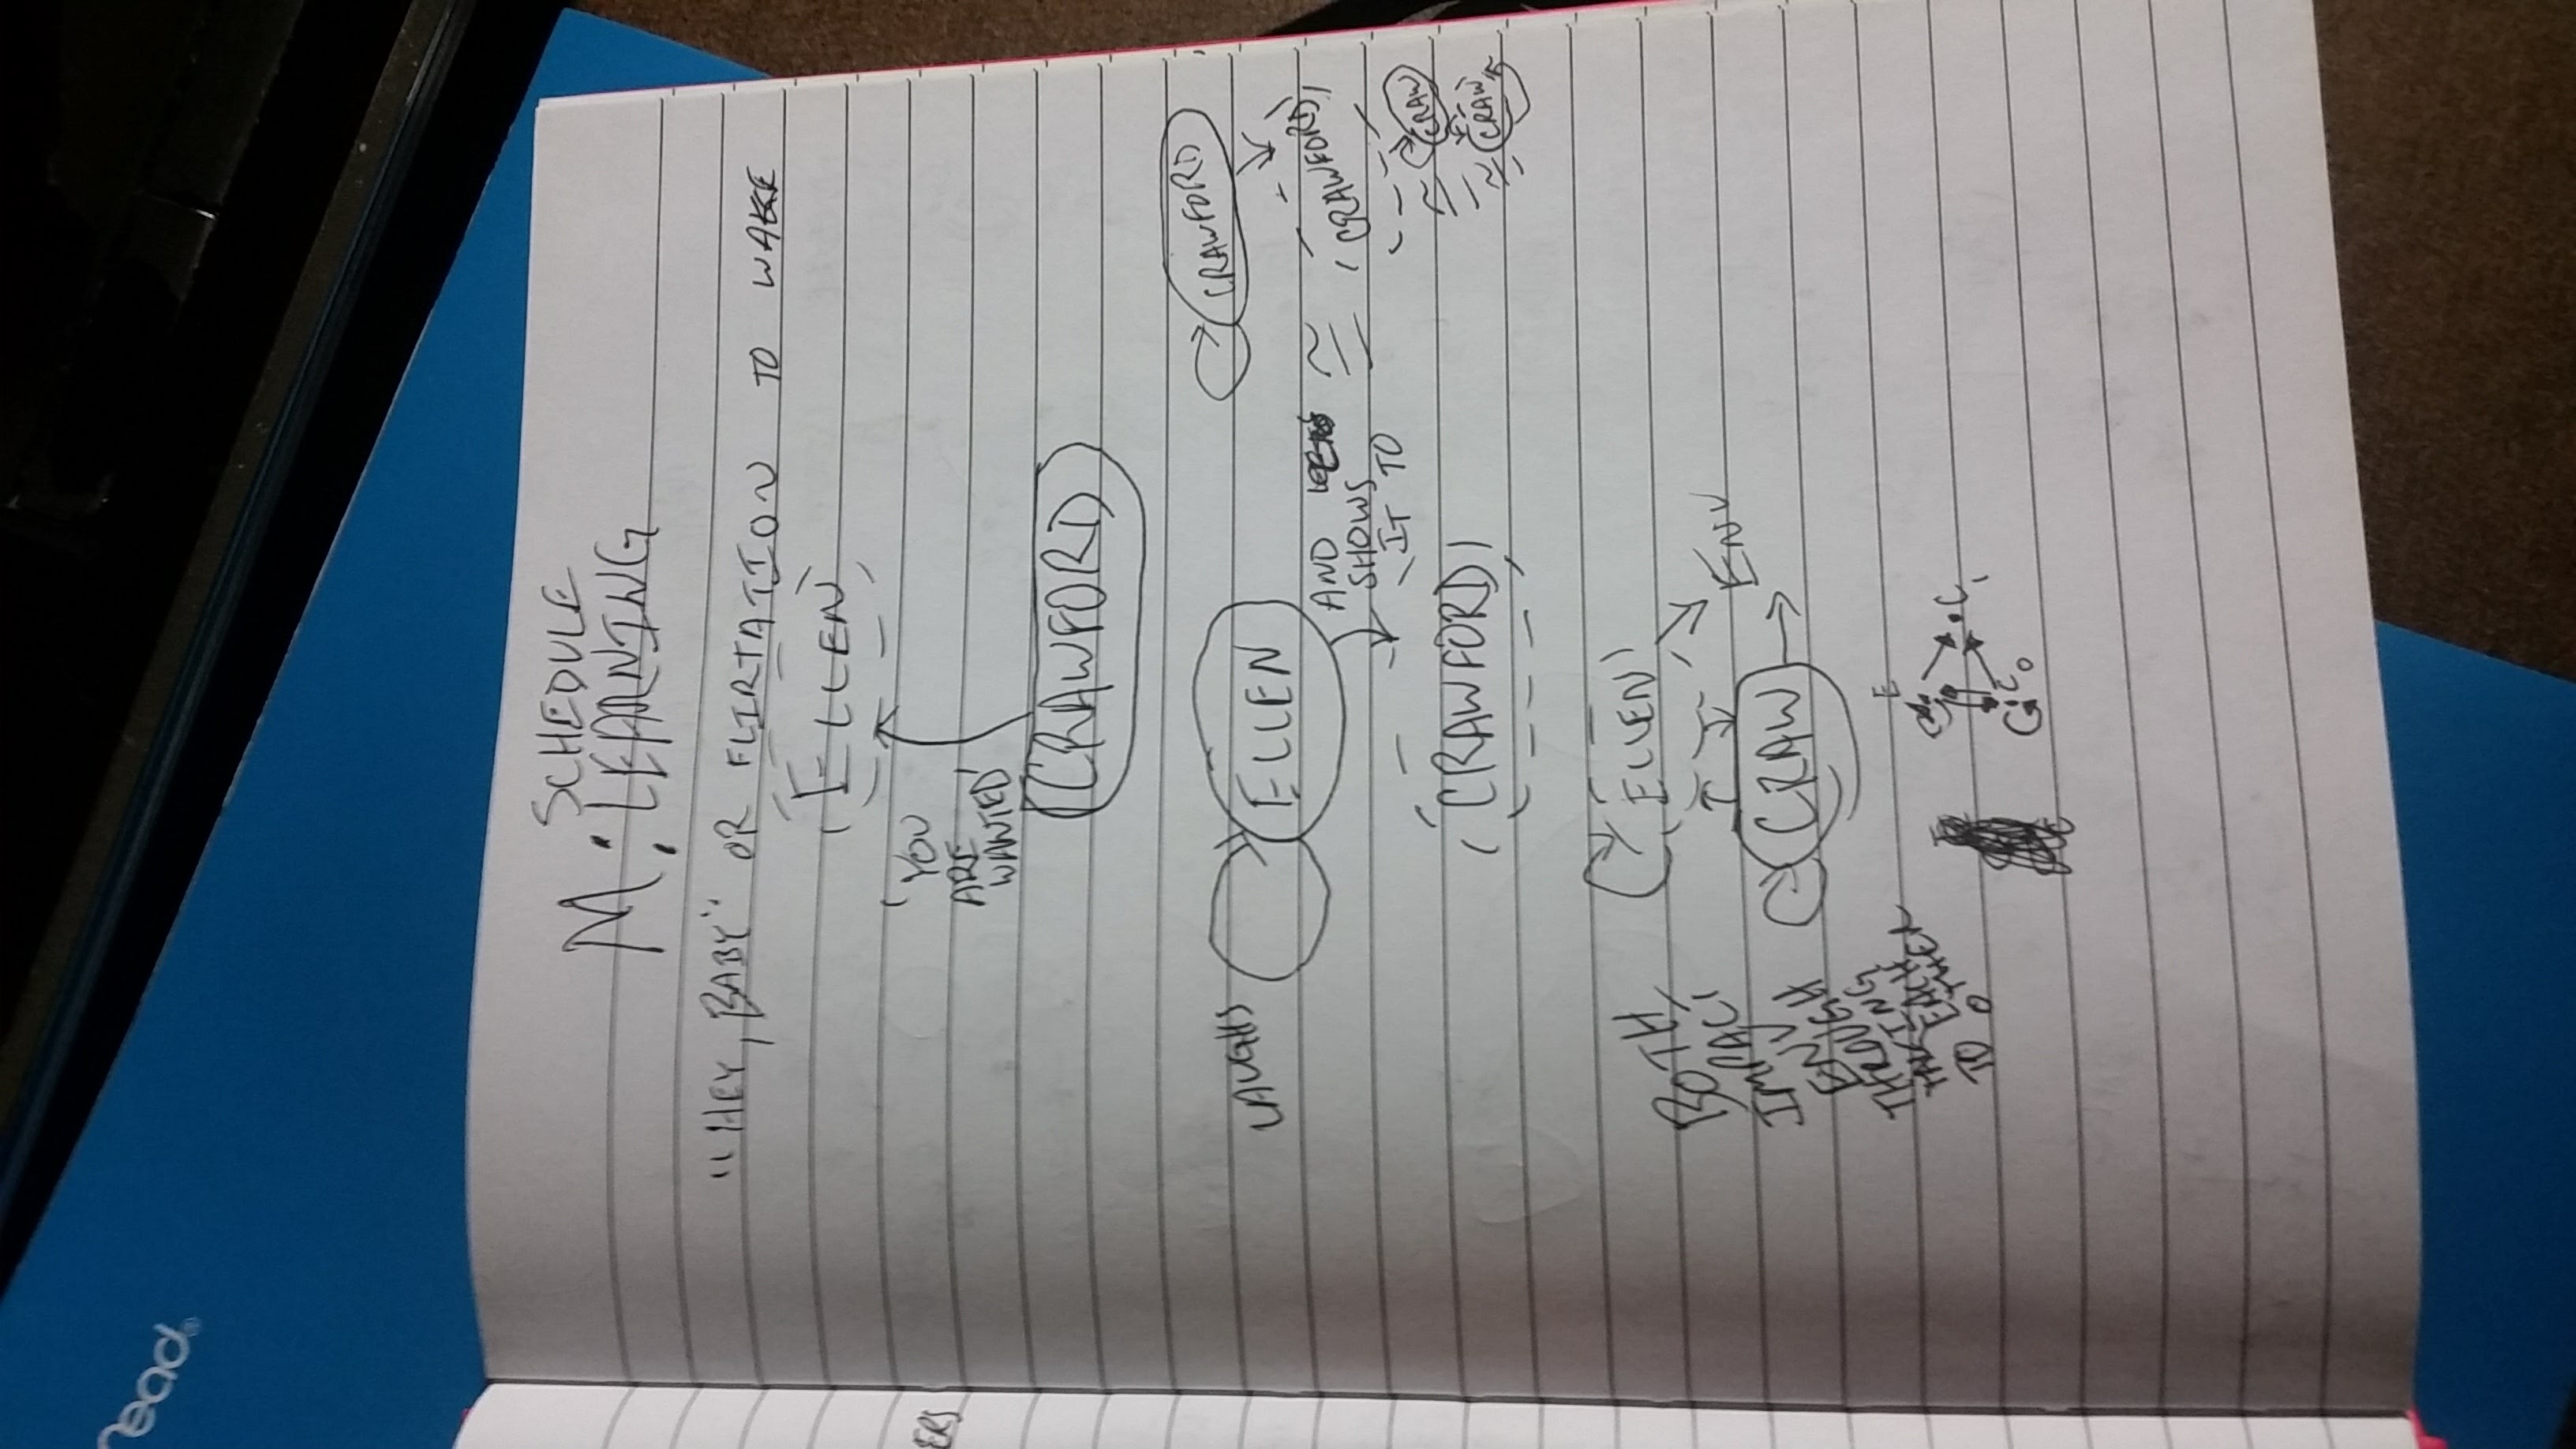 ead®
ERS
SCHEDULE
M: LEARNING
"HEY, BABY" OR FLIRTATION TO WAKE
ELLEN
'YOU
ARE
WANTED'
CRAWFORD
LAUGHS
ELLEN
AND
SHOWS
IT TO
CRAWFORD
CRAWFORD
≅ CRAWFORD
≅ CRAW
≅ CRAW
ELLEN
CRAW
ENV
BOTH
IMPACT
ENV
THROUGH
TALKING
TO EACH
OTHER
E
C1
C0